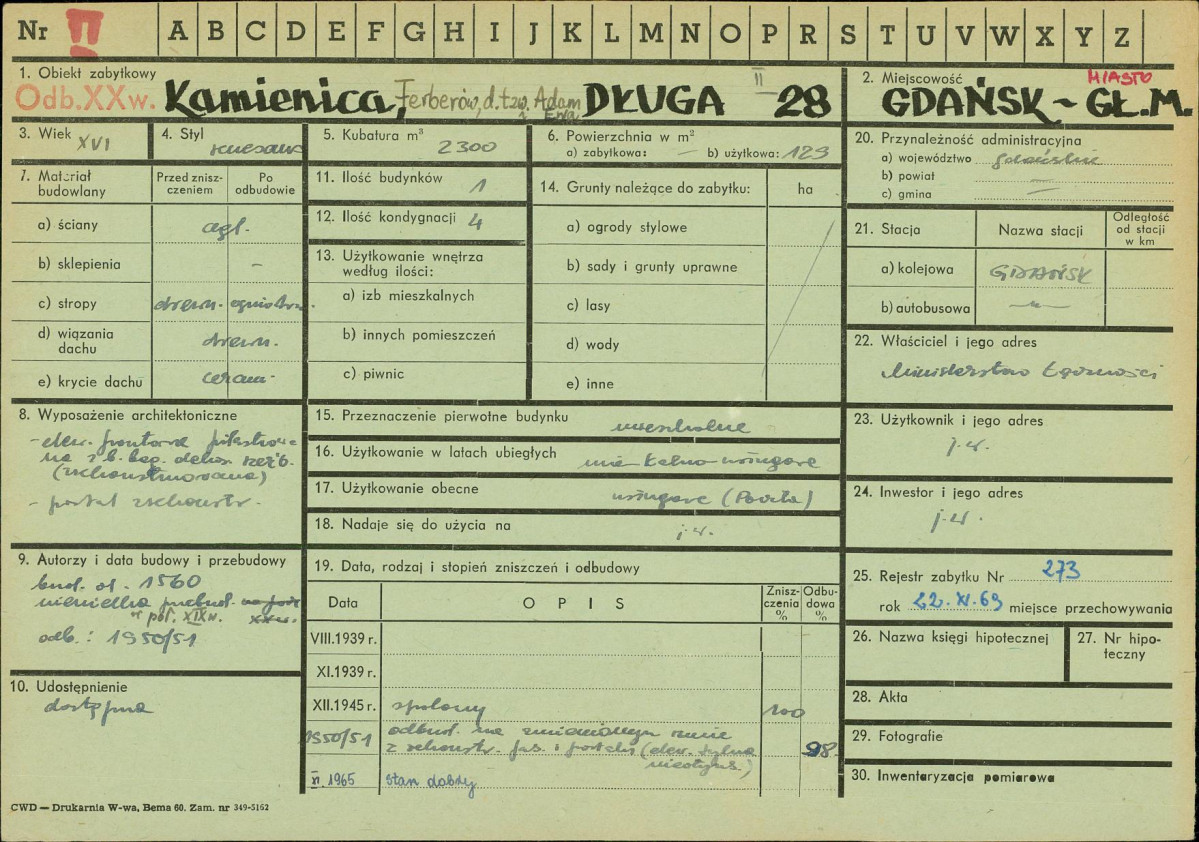 Nr II A B C D E F G H I J K L M N O P R S T U V W X Y Z
1. Obiekt zabytkowy
Odb.XXw. Kamienica, Ferberów, d.tzw. Adam i Ewa DŁUGA II 28
2. Miejscowość MIASTO
GDAŃSK ~ GŁ.M.
3. Wiek XVI
4. Styl renesans
5. Kubatura m³ 2300
6. Powierzchnia w m²
a) zabytkowa: — b) użytkowa: 129
7. Materiał budowlany
Przed zniszczeniem
Po odbudowie
a) ściany cegł.
b) sklepienia –
c) stropy drewn. ogniotrw.
d) wiązania dachu drewn.
e) krycie dachu ceram.
8. Wyposażenie architektoniczne
- elew. frontowa pilastrowa
na z b. bog. dekor. rzeźb.
(rekonstruowana)
- portal rekonstr.
9. Autorzy i data budowy i przebudowy
bud. ok. 1560
niewielka przebud.
w poł. XIX w.
odb.: 1950/51
10. Udostępnienie
dostępna
11. Ilość budynków 1
12. Ilość kondygnacji 4
13. Użytkowanie wnętrza
według ilości:
a) izb mieszkalnych
b) innych pomieszczeń
c) piwnic
14. Grunty należące do zabytku: ha
a) ogrody stylowe
b) sady i grunty uprawne
c) lasy
d) wody
e) inne
15. Przeznaczenie pierwotne budynku mieszkalne
16. Użytkowanie w latach ubiegłych mieszkalno-usługowe
17. Użytkowanie obecne usługowe (Poczta)
18. Nadaje się do użycia na j.w.
19. Data, rodzaj i stopień zniszczeń i odbudowy
Data OPIS Zniszczenia % Odbudowa %
VIII.1939 r.
XI.1939 r.
XII.1945 r. spalony 100
1950/51 odbud. na zmienionym rzucie
z rekonstr. fas. i portalu (elew. tylna
nieotynk.) 98
XI.1965 stan dobry
20. Przynależność administracyjna
a) województwo gdańskie
b) powiat —
c) gmina —
21. Stacja
Nazwa stacji
Odległość od stacji w km
a) kolejowa GDAŃSK
b) autobusowa —"—
22. Właściciel i jego adres
Ministerstwo Łączności
23. Użytkownik i jego adres
j.w.
24. Inwestor i jego adres
j.w.
25. Rejestr zabytku Nr 273
rok 22.XI.69 miejsce przechowywania
26. Nazwa księgi hipotecznej
27. Nr hipoteczny
28. Akta
29. Fotografie
30. Inwentaryzacja pomiarowa
CWD — Drukarnia W-wa, Bema 60. Zam. nr 349-5162